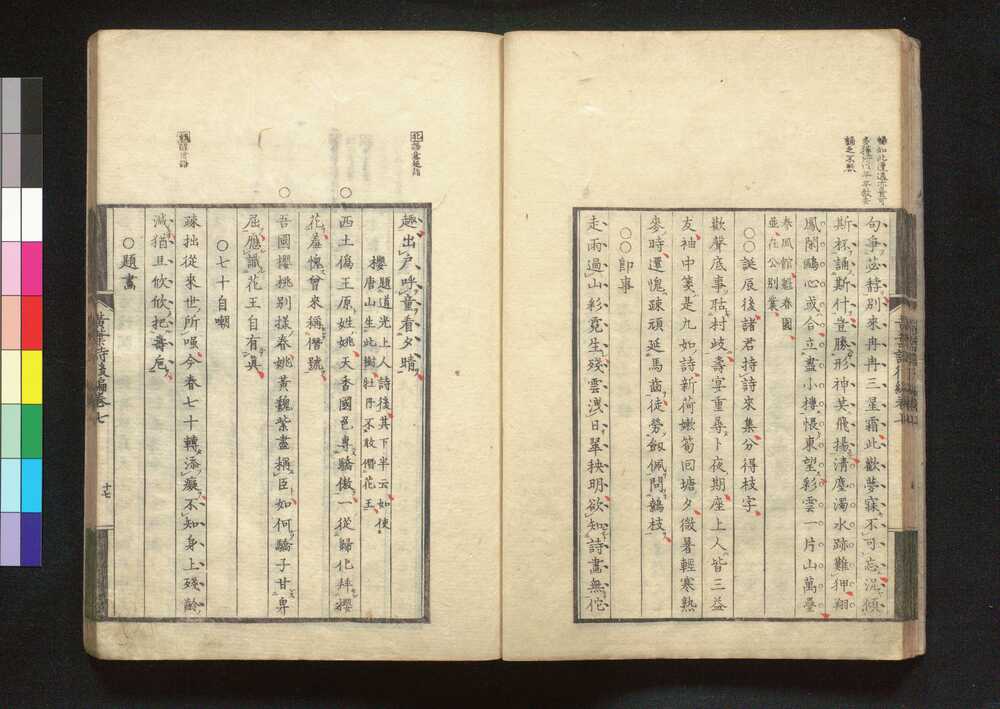 句爭苾馞別來冉冉三星霜此歡夢寐不可忘況傾
斯杯誦斯什豈勝形神共飛揚清塵濁水跡難押翔
鳳閑鷗心或合立盡小樓悵東望彩雲一片山萬疊
春風館 春園
並在公別業
○○誕辰後諸君持詩來集分得枝字
歡聲底事聒村歧壽宴重尋卜夜期座上人皆三益
友袖中箋是九如詩新荷嫩筍回塘夕微暑輕寒熟
麥時還愧疎頑延馬齒徒勞劔佩問鶴枝
○○卽事
走雨過山彩霓生殘雲洩日翠秧明欲知詩畵無佗
趣出戶呼童看夕晴
櫻 題道光上人詩後其下半云如使
唐山生此樹牡丹不敢僭花王
○西土僞王原姓姚天香國色專驕傲一從歸化拜櫻
花羞愧曾來稱僭號
○吾國櫻桃別樣春姚黃魏紫盡稱臣如何驕子甘卑
屈應識花王自有眞
○七十自嘲
疎拙從來世所嗤今春七十轉添癡不知身上殘齡
減猶且攸攸把壽卮
○題畵
黃葉詩後編卷七
十七